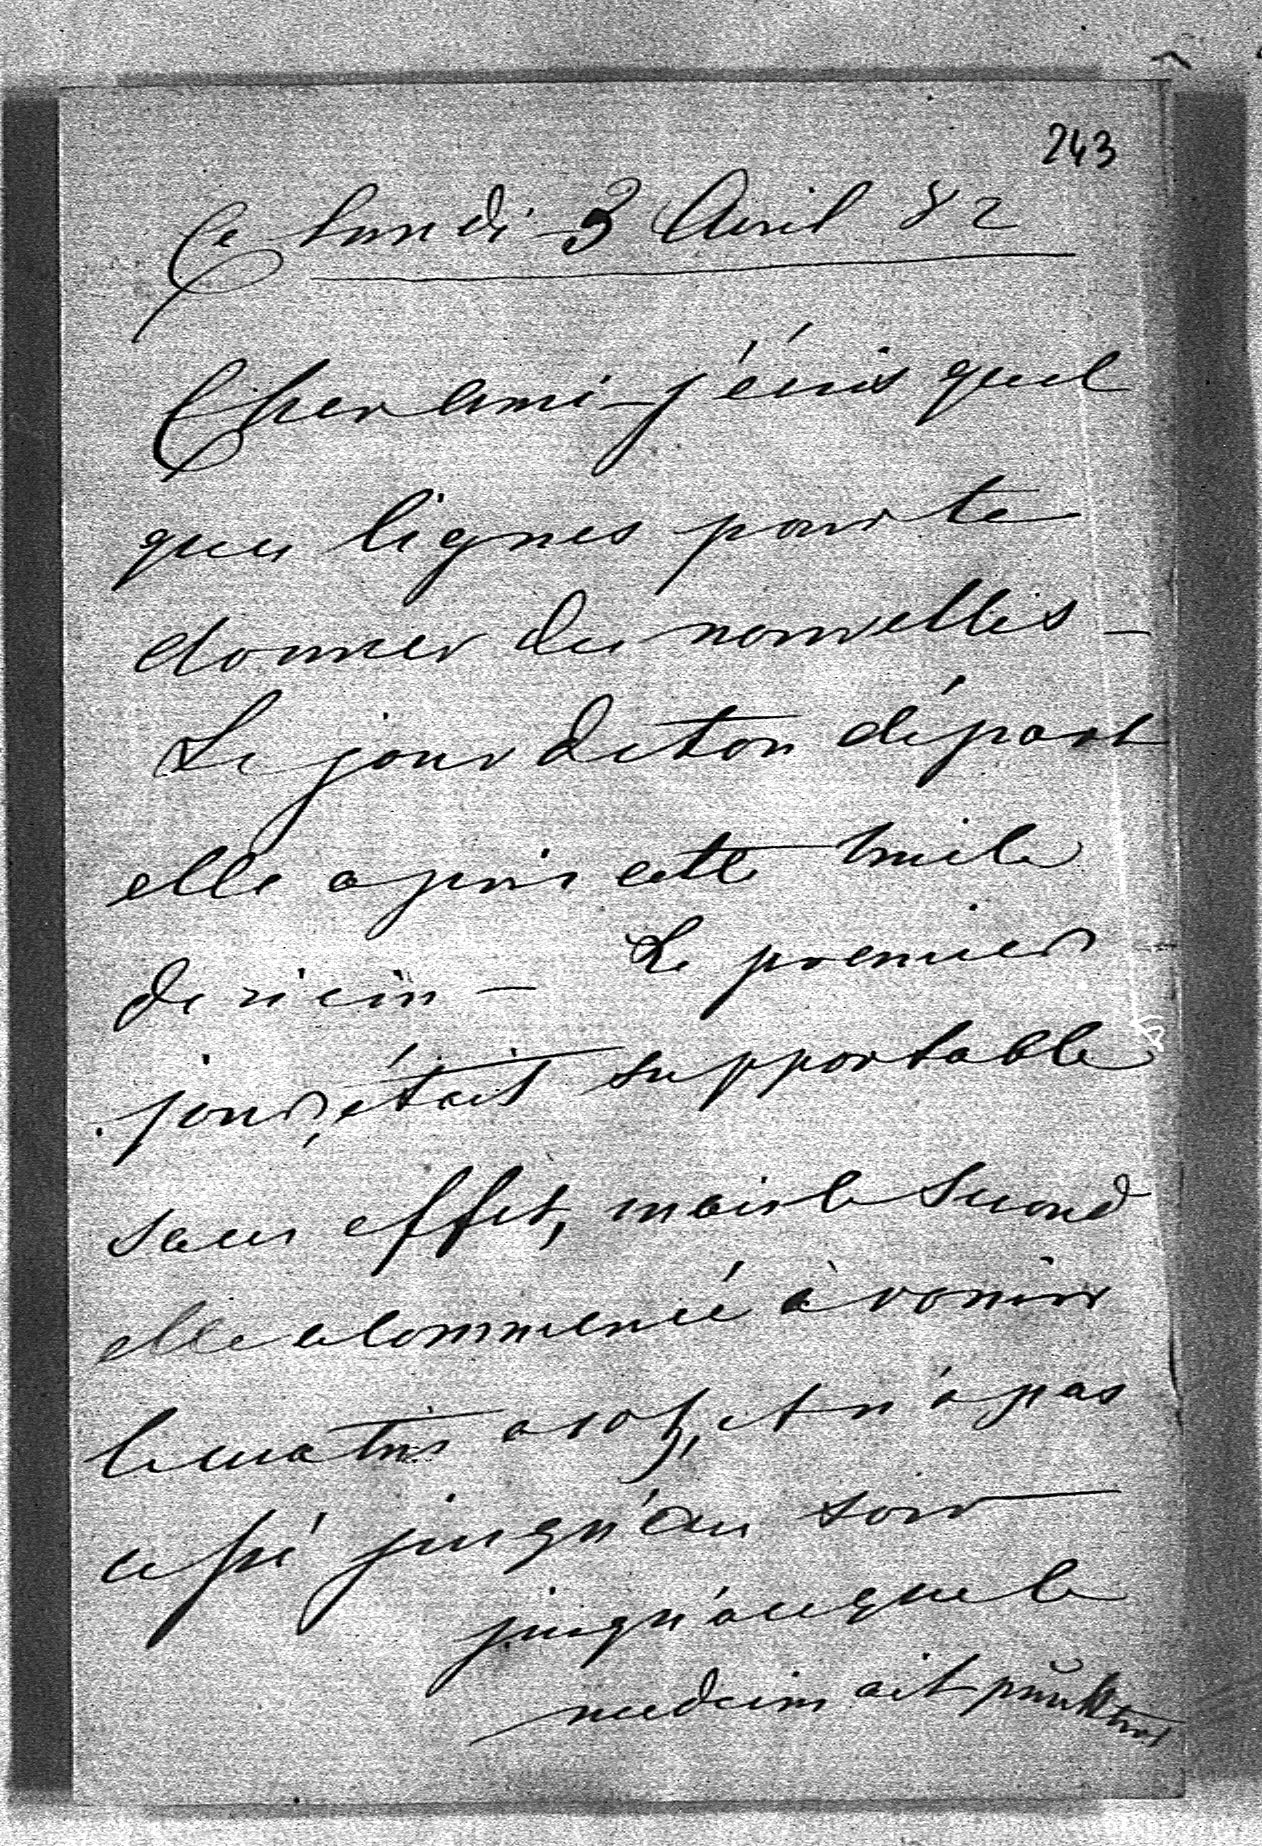 243
Ce lundi 3 Avril 82
Cher ami – j'écris quel
ques lignes pour te
donner des nouvelles –
Le jour de ton départ
elle a pris cette huile
de ricin – Le premier
jour, était supportable
sans effet, mais le second
elle a commencé à vomir
le matin a 10 h, et n'a pas
cessé jusqu'au soir
jusqu'a ce que le
medecin ait